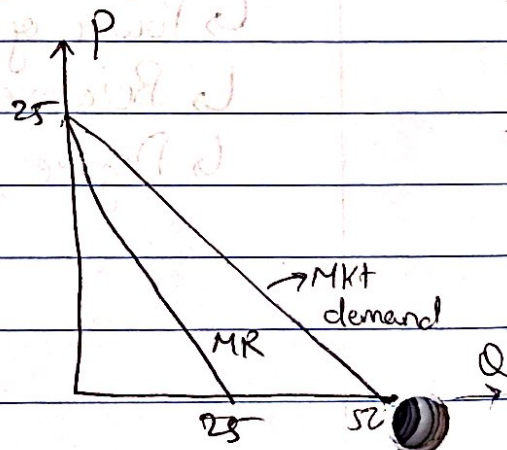 P
25
MKt
demand
MR
Q
25
52